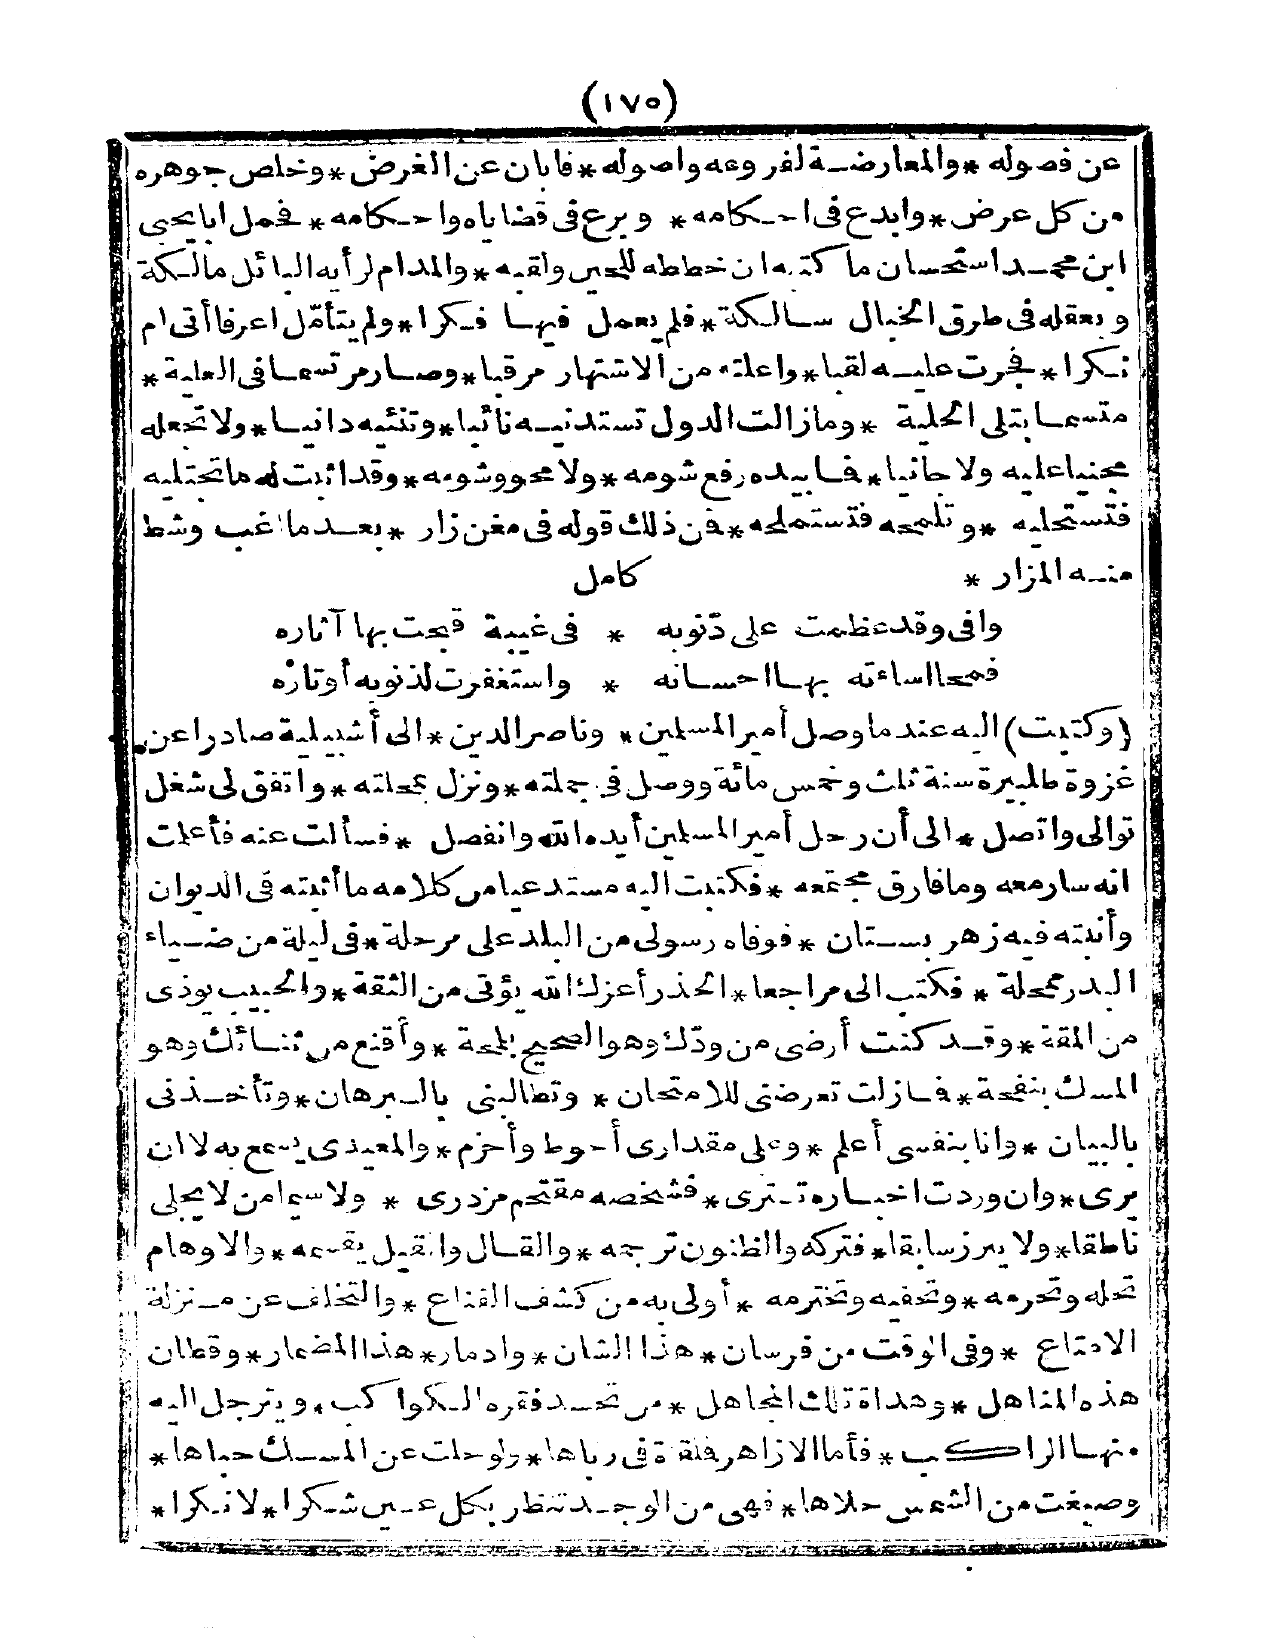 (١٧٥)
عن فصوله * والمعارضة لفروعه واصوله * فابان عن الغرض * وخلص جوهره
من كل عرض * وابدع في احكامه * وبرع في قضاياه واحكامه * فحمل ابا يحيى
ابن محمد استحسان ما كتبه ان خططه للحين ولقبه * والمدام لرأيه البائل مالكة
وبعقله في طرق الخبال سالكة * فلم يعمل فيها فكرا * ولم يتأمّل اعرفا أتى ام
نكرا * فجرت عليه لقبا * واعلته من الاشتهار مرقبا * وصار مرتسما في العلية *
متسما بتلى الحلية * وما زالت الدول تستدنيه نائيا * وتنئيه دانيا * ولا تجعله
مجنيا عليه ولا جانيا * فما بيده رفع شومه * ولا محو وشومه * وقد اثبت له ما تجتليه
فتستحليه * وتلمحه فتستملحه * فمن ذلك قوله في مغن زار * بعد ما اغب وشط
منه المزار * كامل
وافى وقد عظمت على ذنوبه * في غيبة قبحت بها آثاره
فمحا اساءته بها احسانه * واستغفرت لذنوبه أوتاره
(وكتبت) اليه عند ما وصل أمير المسلمين * وناصر الدين * الى أشبيلية صادرا عن
غزوة طلبيرة سنة ثلث وخمس مائة ووصل في جملته * ونزل بمحلته * واتفق لي شغل
توالى واتصل * الى أن رحل أمير المسلمين أيده الله وانفصل * فسألت عنه فأعلمت
انه سار معه وما فارق مجتمعه * فكتبت اليه مستدعيا من كلامه ما أثبته في الديوان
وأنبته فيه زهر بستان * فوفاه رسولي من البلد على مرحلة * في ليلة من ضياء
البدر ممحلة * فكتب الى مراجعا * الحذر أعزك الله يؤتى من الثقة * والحبيب يوذى
من المقة * وقد كنت أرضى من ودّك وهو الصحيح بلمحة * وأقنع من ثنائك وهو
المسك بنفحة * فما زلت تعرضني للامتحان * وتطالبني بالبرهان * وتأخذني
بالبيان * وانا بنفسي أعلم * وعلى مقداري أحوط وأحزم * والمعيدى يسمع به لا ان
يرى * وان وردت اخباره تترى * فشخصه مقتحم مزدرى * ولا سيما من لا يجلى
ناطقا * ولا يبرز سابقا * فتركه والظنون ترجمه * والقال والقيل يقسمه * والاوهام
تحله وتحرمه * وتخفيه وتخترمه * أولى به من كشف القناع * والتخلف عن منزلة
الامتاع * وفى الوقت من فرسان * هذا الشان * واذمار * هذا المضمار * وقطان
هذه المناهل * وهداة تلك المجاهل * من تحسد فقره الكواكب * ويترجل اليه
منها الراكب * فأما الازاهر فلقة في رباها * ولو حلت عن المسك حباها *
وصيغت من الشمس حلاها * فهي من الوجد تنظر بكل عين شكرا * لا نكرا *